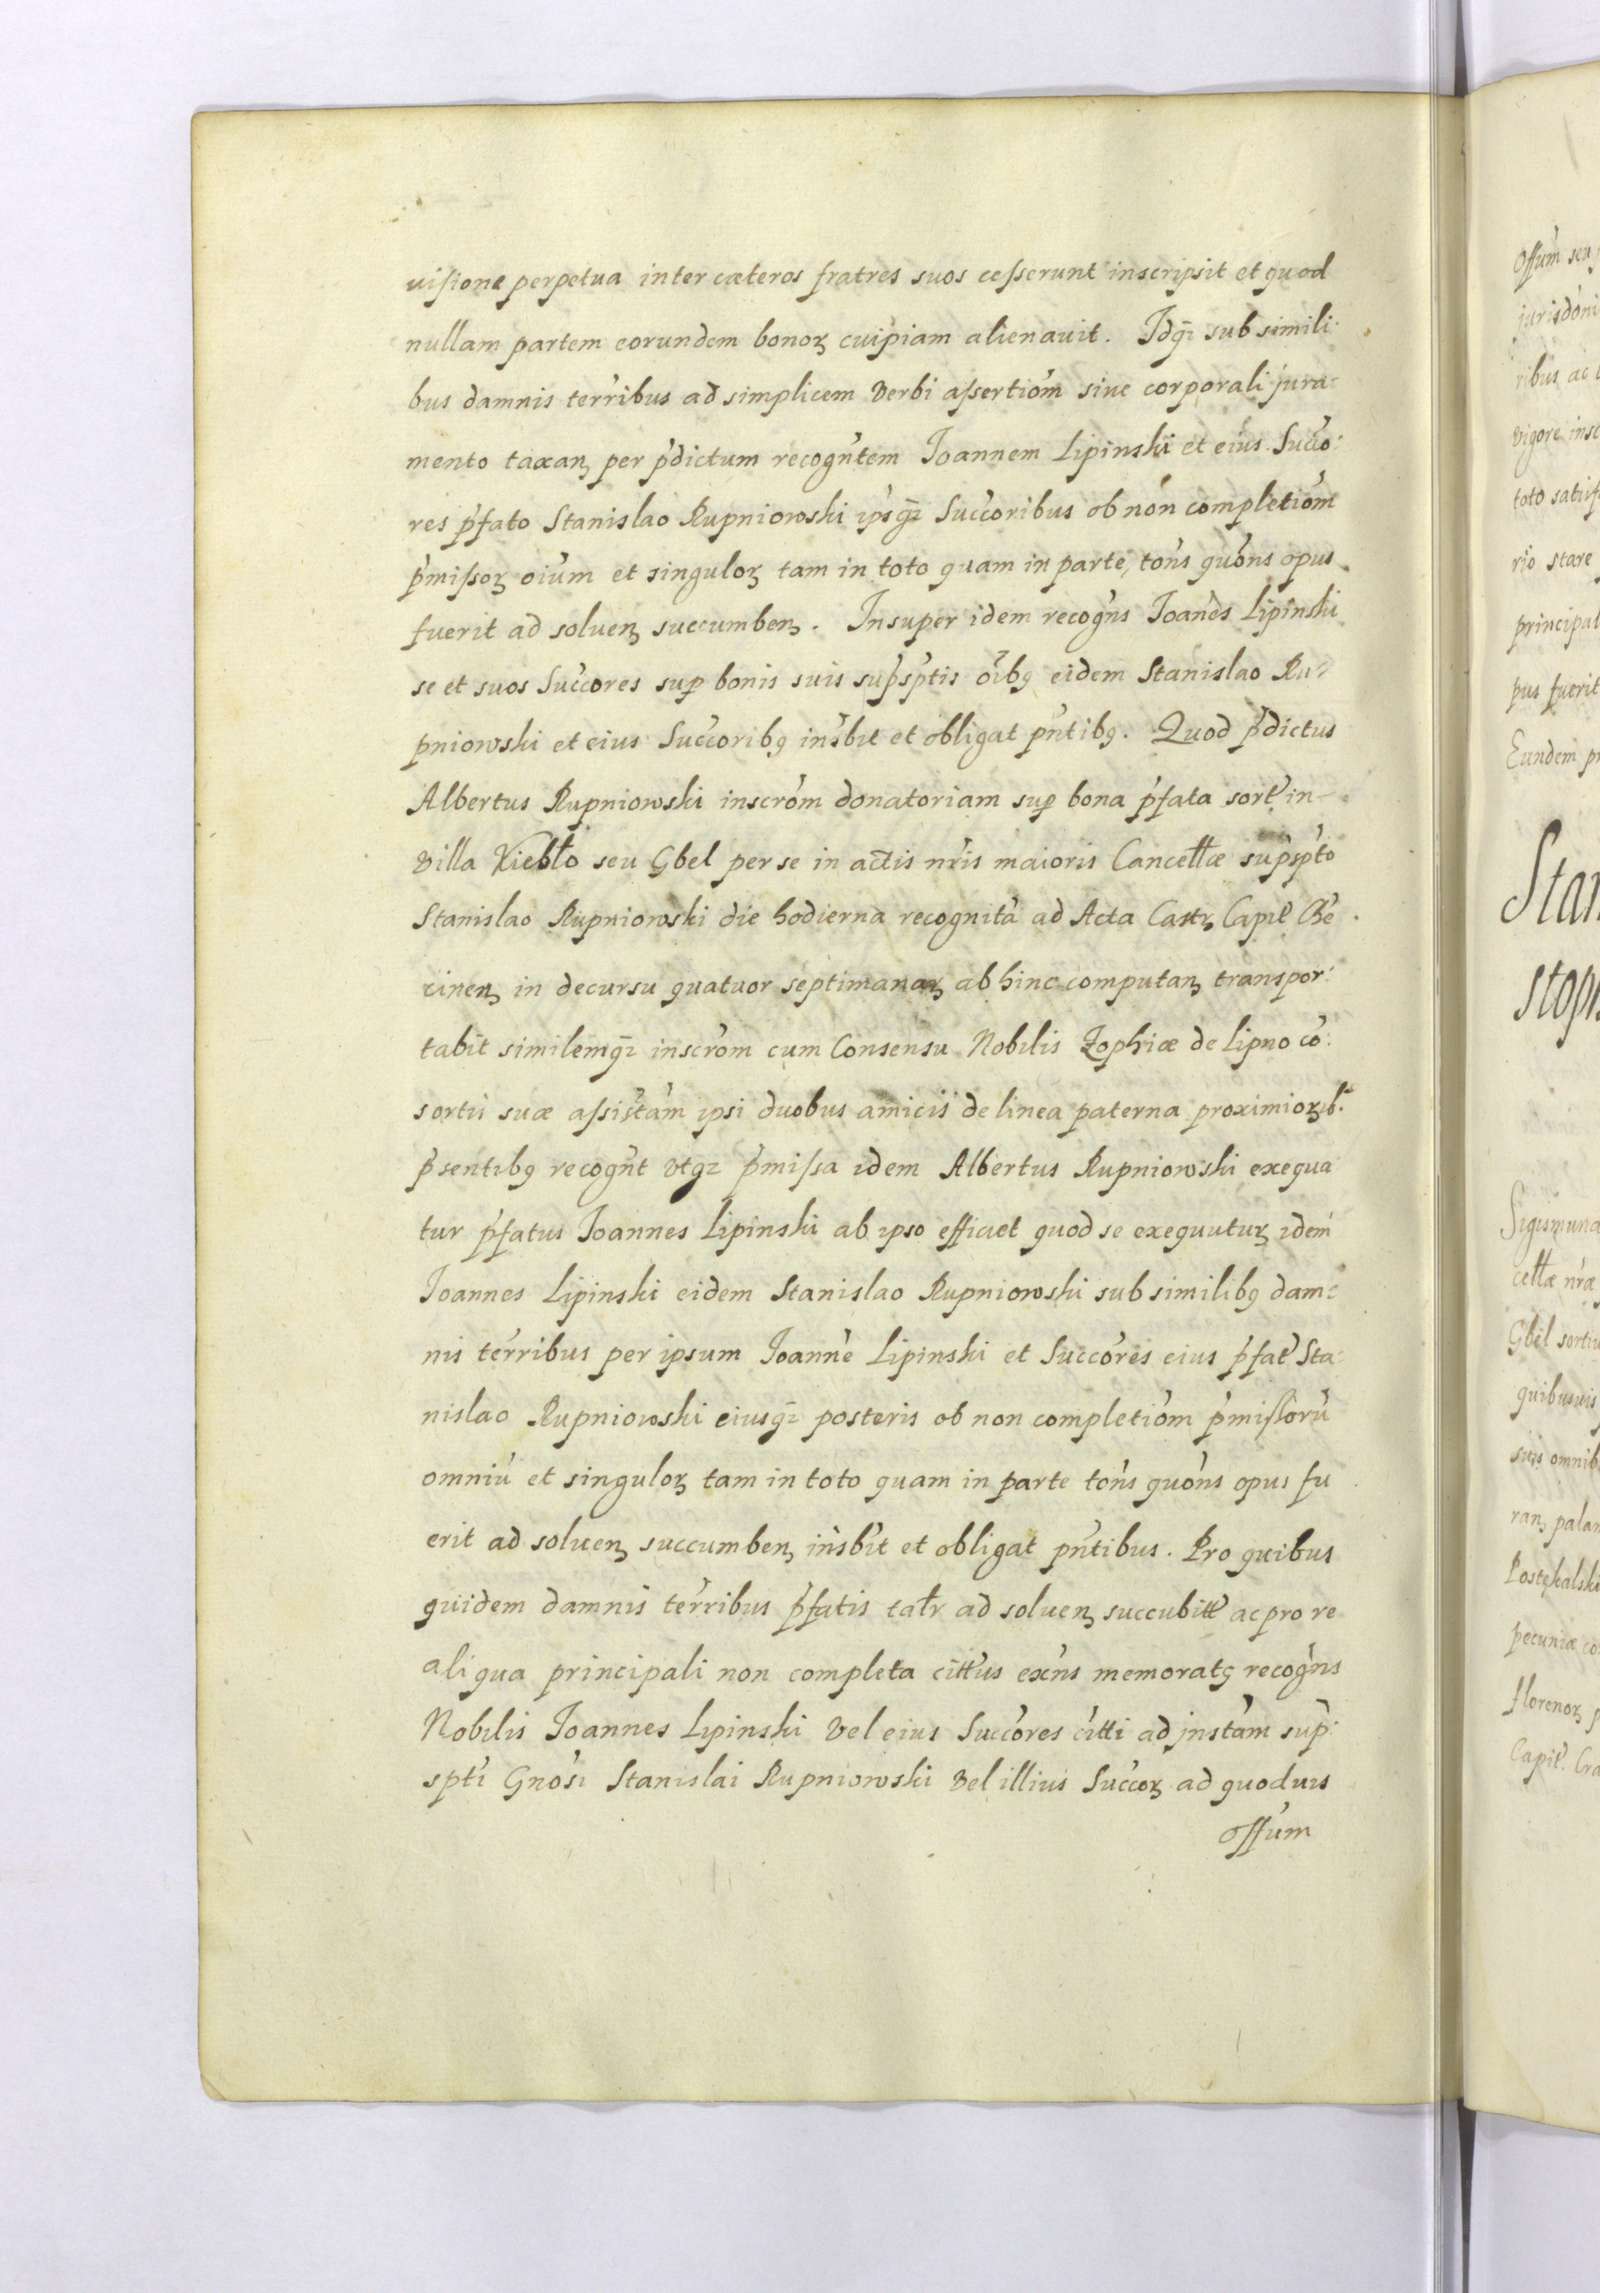 uisione perpetua inter cæteros fratres suos cesserunt inscripsit et quod
nullam partem eorundem bonoꝝ cuipiam alienauit. Idqꝫ sub simili:
bus damnis terribus ad simplicem verbi assertiom̃ siue corporali jura:
mento taxanꝫ per p̃dictum recogñtem Joannem Lipinski et eius Succo:
res p̃fato Stanislao Rupniowski ipsqꝫ Succoribus ob non completiom̃
p̃missoꝝ oium et singuloꝝ tam in toto quam in parte, tons̃ quons̃ opus
fuerit ad soluenꝫ succumbenꝫ. Insuper idem recogñs Joanes̃ Lipinski
se et suos Succores sup bonis suis sup̃sp̃tis oib̃ꝫ eidem Stanislao Ru:
pniowski et eius Succoribꝫ ins̃bit et obligat pñtibꝫ. Quod p̃dictus
Albertus Rupniowski inscrom̃ donatoriam sup bona p̃fata sort̃ in
villa Kiebło seu Gbel per se in actis nr̃is maioris Cancellæ sup̃spto
Stanislao Rupniowski die hodierna recognita ad Acta Castrꝫ Capil Bie
cinenꝫ in decursu quatuor septimanaꝝ ab hinc computanꝫ transpor:
tabit similemqꝫ inscrom̃ cum Consensu Nobilis Zophiæ de Lipno co:
sortis suæ assistam̃ ipsi duobus amicis de linea paterna proximioꝝb:
p̃sentibꝫ recogñt vtqꝫ p̃missa idem Albertus Rupniowski exequa
tur p̃fatus Joannes Lipinski ab ipso efficiet quod se exequuturꝫ idem
Joannes Lipinski eidem Stanislao Rupniowski sub similibꝫ dam:
nis terribus per ipsum Joannẽ Lipinski et Succores eius p̃fat̃ Sta:
nislao Rupniowski eiusqꝫ posteris ob non completiom̃ p̃missorũ
omniũ et singuloꝝ tam in toto quam in parte tons̃ quons̃ opus fu
erit ad soluenꝫ succumbenꝫ ins̃bit et obligat pñtibus. Pro quibus
quidem damnis terribus p̃fatis talr̃ ad soluenꝫ succubitt ac pro re
aliqua principali non completa cittus exñs memoratꝫ recogñs
Nobilis Joannes Lipinski vel eius Succores citti ad jnstam̃ sup:
spti Gnosi Stanislai Rupniowski vel illius Succoꝝ ad quoduis
offum
Offum seu
jurisdoni
ribus ac
vigore insc
toto satisf
rio stare
principal
pus fuerit
Eundem pr
Stan
stop
Sigismund
cellæ nr̃æ
Gbel sortiu
quibusuis
suis omnib
ranꝫ palam
Postękalski
pecuniæ co
florenoꝝ
Capit. Cra